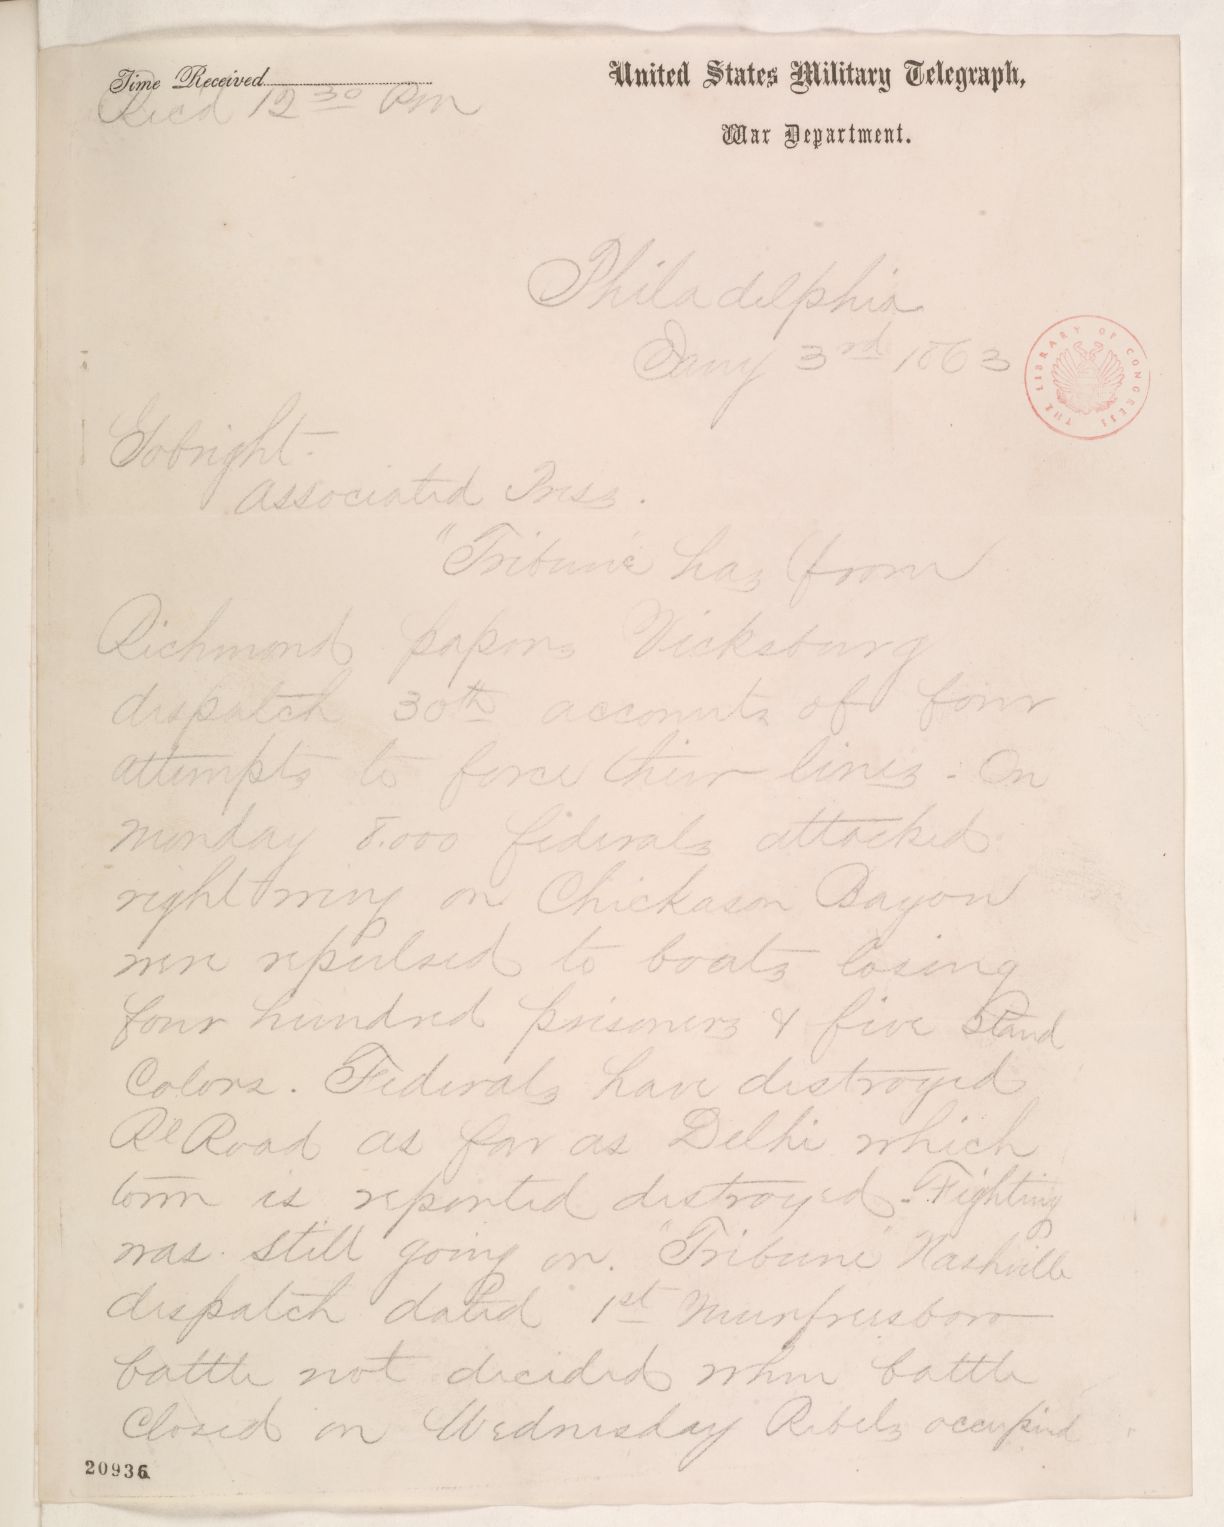 Time Received
United States Military Telegraph,
War Department.
Recd 12 30 Pm
Philadelphia
Jany 3rd 1863
THE LIBRARY OF CONGRESS
Gobright.
Associated Press.
"Tribune" has from
Richmond papers Vicksburg
dispatch 30th accounts of four
attempts to force their lines. On
monday 8.000 federals attacked
right wing on Chickasaw Bayou
were repulsed to boats losing
four hundred prisoners & five Stand
Colors. Federals have destroyed
Rl Road as far as Delhi which
town is reported destroyed. Fighting
was still going on. "Tribune" Nashville
dispatch dated 1st Murfreesboro
battle not decided when battle
closed on Wednesday Rebels occupied
20936